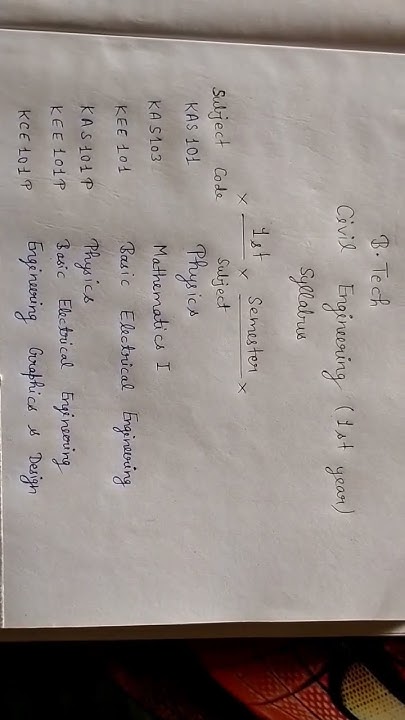 B. Tech
Civil Engineering (1st year)
Syllabus
x 1st x Semester x
Subject Code Subject
KAS 101 Physics
KAS103 Mathematics I
KEE 101 Basic Electrical Engineering
KAS101P Physics
KEE 101P Basic Electrical Engineering
KCE101P Engineering Graphics & Design